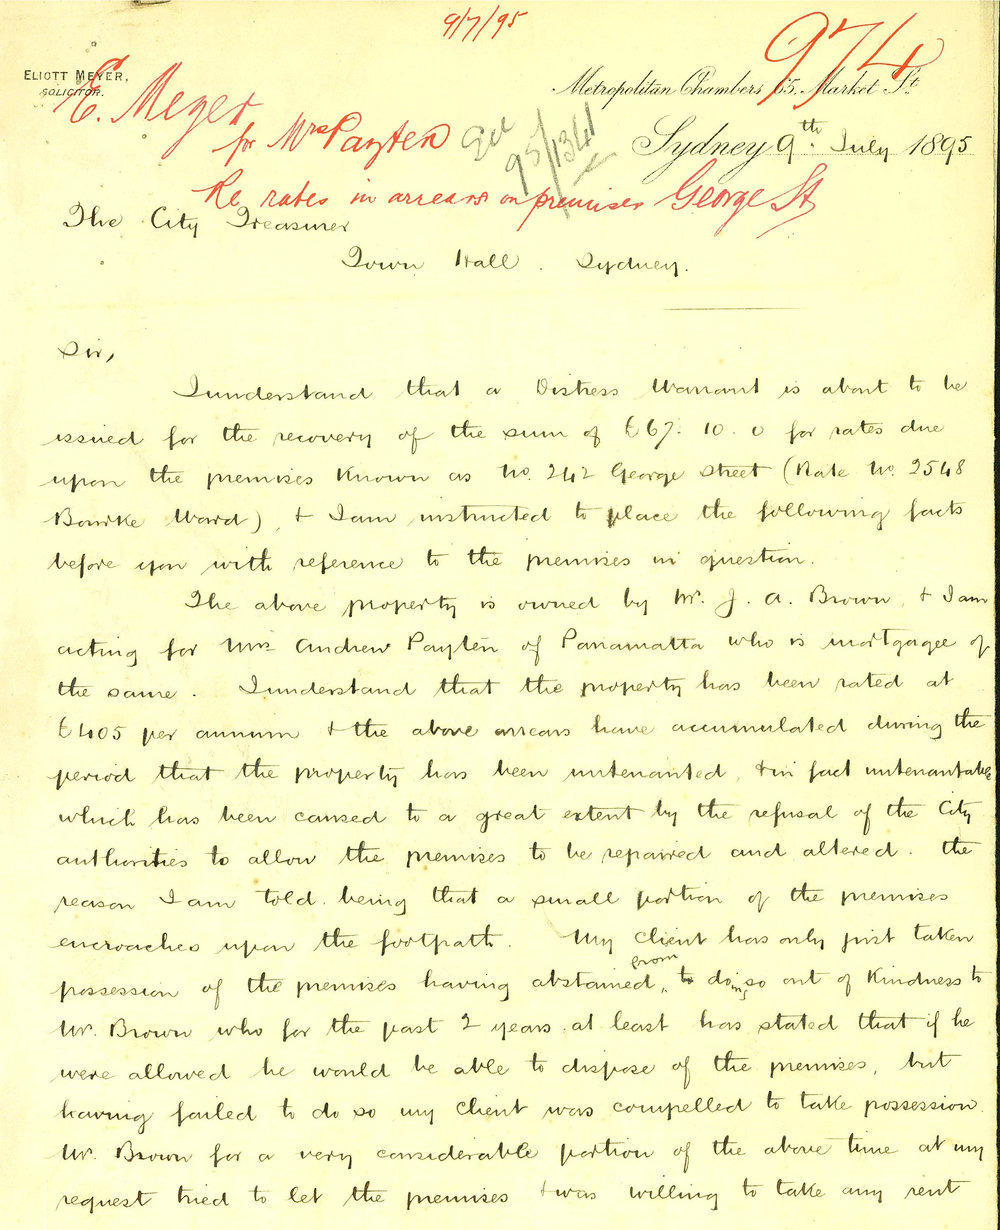 9/7/95
974
ELIOTT MEYER,
SOLICITOR.
Metropolitan Chambers 65. Market St
E. Meyer
for Mrs Payten
95/1341
Sydney 9th July 1895
Re rates in arrears on premises George St
The City Treasurer
Town Hall. Sydney.
Sir,
I understand that a Distress Warrant is about to be
issued for the recovery of the sum of £67. 10. 0 for rates due
upon the premises known as No. 242 George Street (Rate No. 2548
Bourke Ward), & I am instructed to place the following facts
before you with reference to the premises in question.
The above property is owned by Mr. J. A. Brown, & I am
acting for Mrs Andrew Payten of Parramatta who is mortgagee of
the same. I understand that the property has been rated at
£405 per annum & the above arrears have accumulated during the
period that the property has been untenanted, & in fact untenantable
which has been caused to a great extent by the refusal of the City
authorities to allow the premises to be repaired and altered. the
reason I am told being that a small portion of the premises
encroaches upon the footpath. My client has only just taken
possession of the premises having abstained from to doing so out of kindness to
Mr. Brown who for the past 2 years at least has stated that if he
were allowed he would be able to dispose of the premises, but
having failed to do so my client was compelled to take possession.
Mr. Brown for a very considerable portion of the above time at my
request tried to let the premises & was willing to take any rent